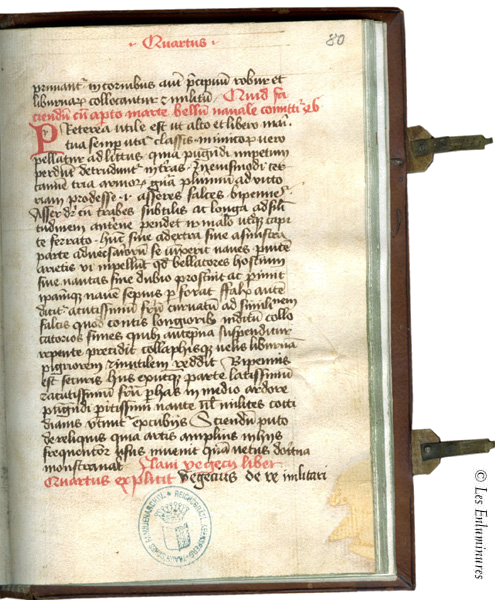 · Quartus ·
80
primant' in cornibus aut p̄cipuū robur et
liburnaꝝ collocantur ⁊ militū Quid fa
ciendū cū apto marte bellū nauale comitt'
Preterea utile est ut alto et libero mari
tua semp utat' classis inimicoꝝ uero
pellatur ad littus quia pugnādi impetum
perdūt detrudunt' in t'ras
tamine tria armoꝝ gn̄a plurimū ad uicto
riam prodesse ·i· asseres falces bipennes
Asser dr̄ cū trabes subtilis ac longa ad sili
tudinem antēne pendet in malo utqꝫ capi
te ferrato hūc siue a dextra siue a sinistra
parte aduersarioꝝ se iunxerit naues p uice
arietis vi inpellūt qd bellatores hostium
siue nautas siue dubio prosternit ac pimit
ipamqꝫ nauē sepius pforat ffalx aute
dicit' acutissimū ferrū curuatū ad similitudinem
falcis quod contis longioribus inditū collo
catorios funes quibꝫ antenna suspenditur
repente precidit collapsisqꝫ uelis liburna
pigriorem ⁊ inutilem reddit Bipennis
est securis hn̄s ex utraqꝫ parte latissimū
⁊ acutissimū ferrū p has in medio ardore
pugnādi peritissimi naute uel milites
Sciendū puto
de reliquis qua artis amplius in hijs
frequentior usus inuenit quā uetus doctrina
monstrauat Flaui vegecij liber
Quartus explicit Vegecius de re militari
© Les Enluminures